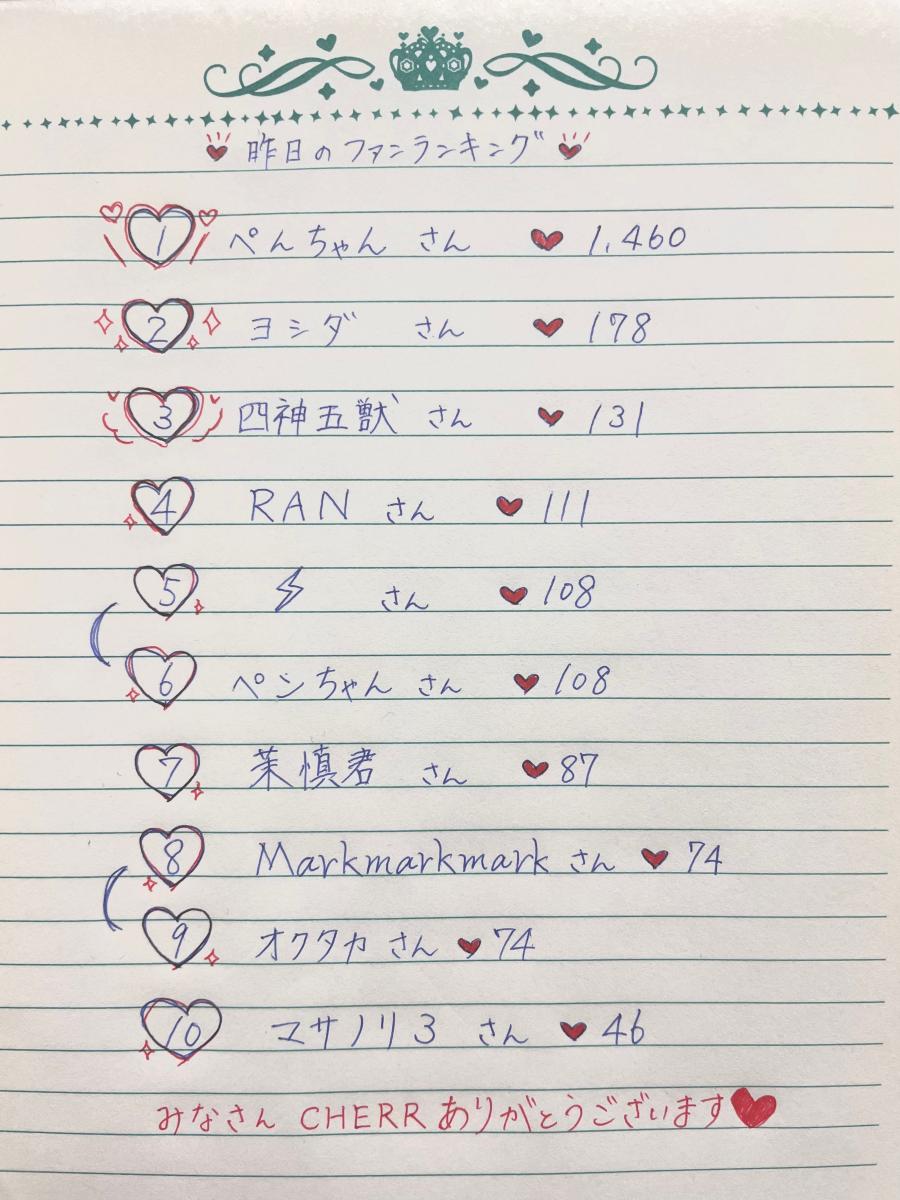 昨日のファンランキング
1 ぺんちゃん さん ♥ 1,460
2 ヨシダ さん ♥ 178
3 四神五獣 さん ♥ 131
4 RAN さん ♥ 111
5 ⚡ さん ♥ 108
6 ペンちゃん さん ♥ 108
7 茉慎君 さん ♥ 87
8 Markmarkmark さん ♥ 74
9 オクタカ さん ♥ 74
10 マサノリ3 さん ♥ 46
みなさん CHERR ありがとうございます♥